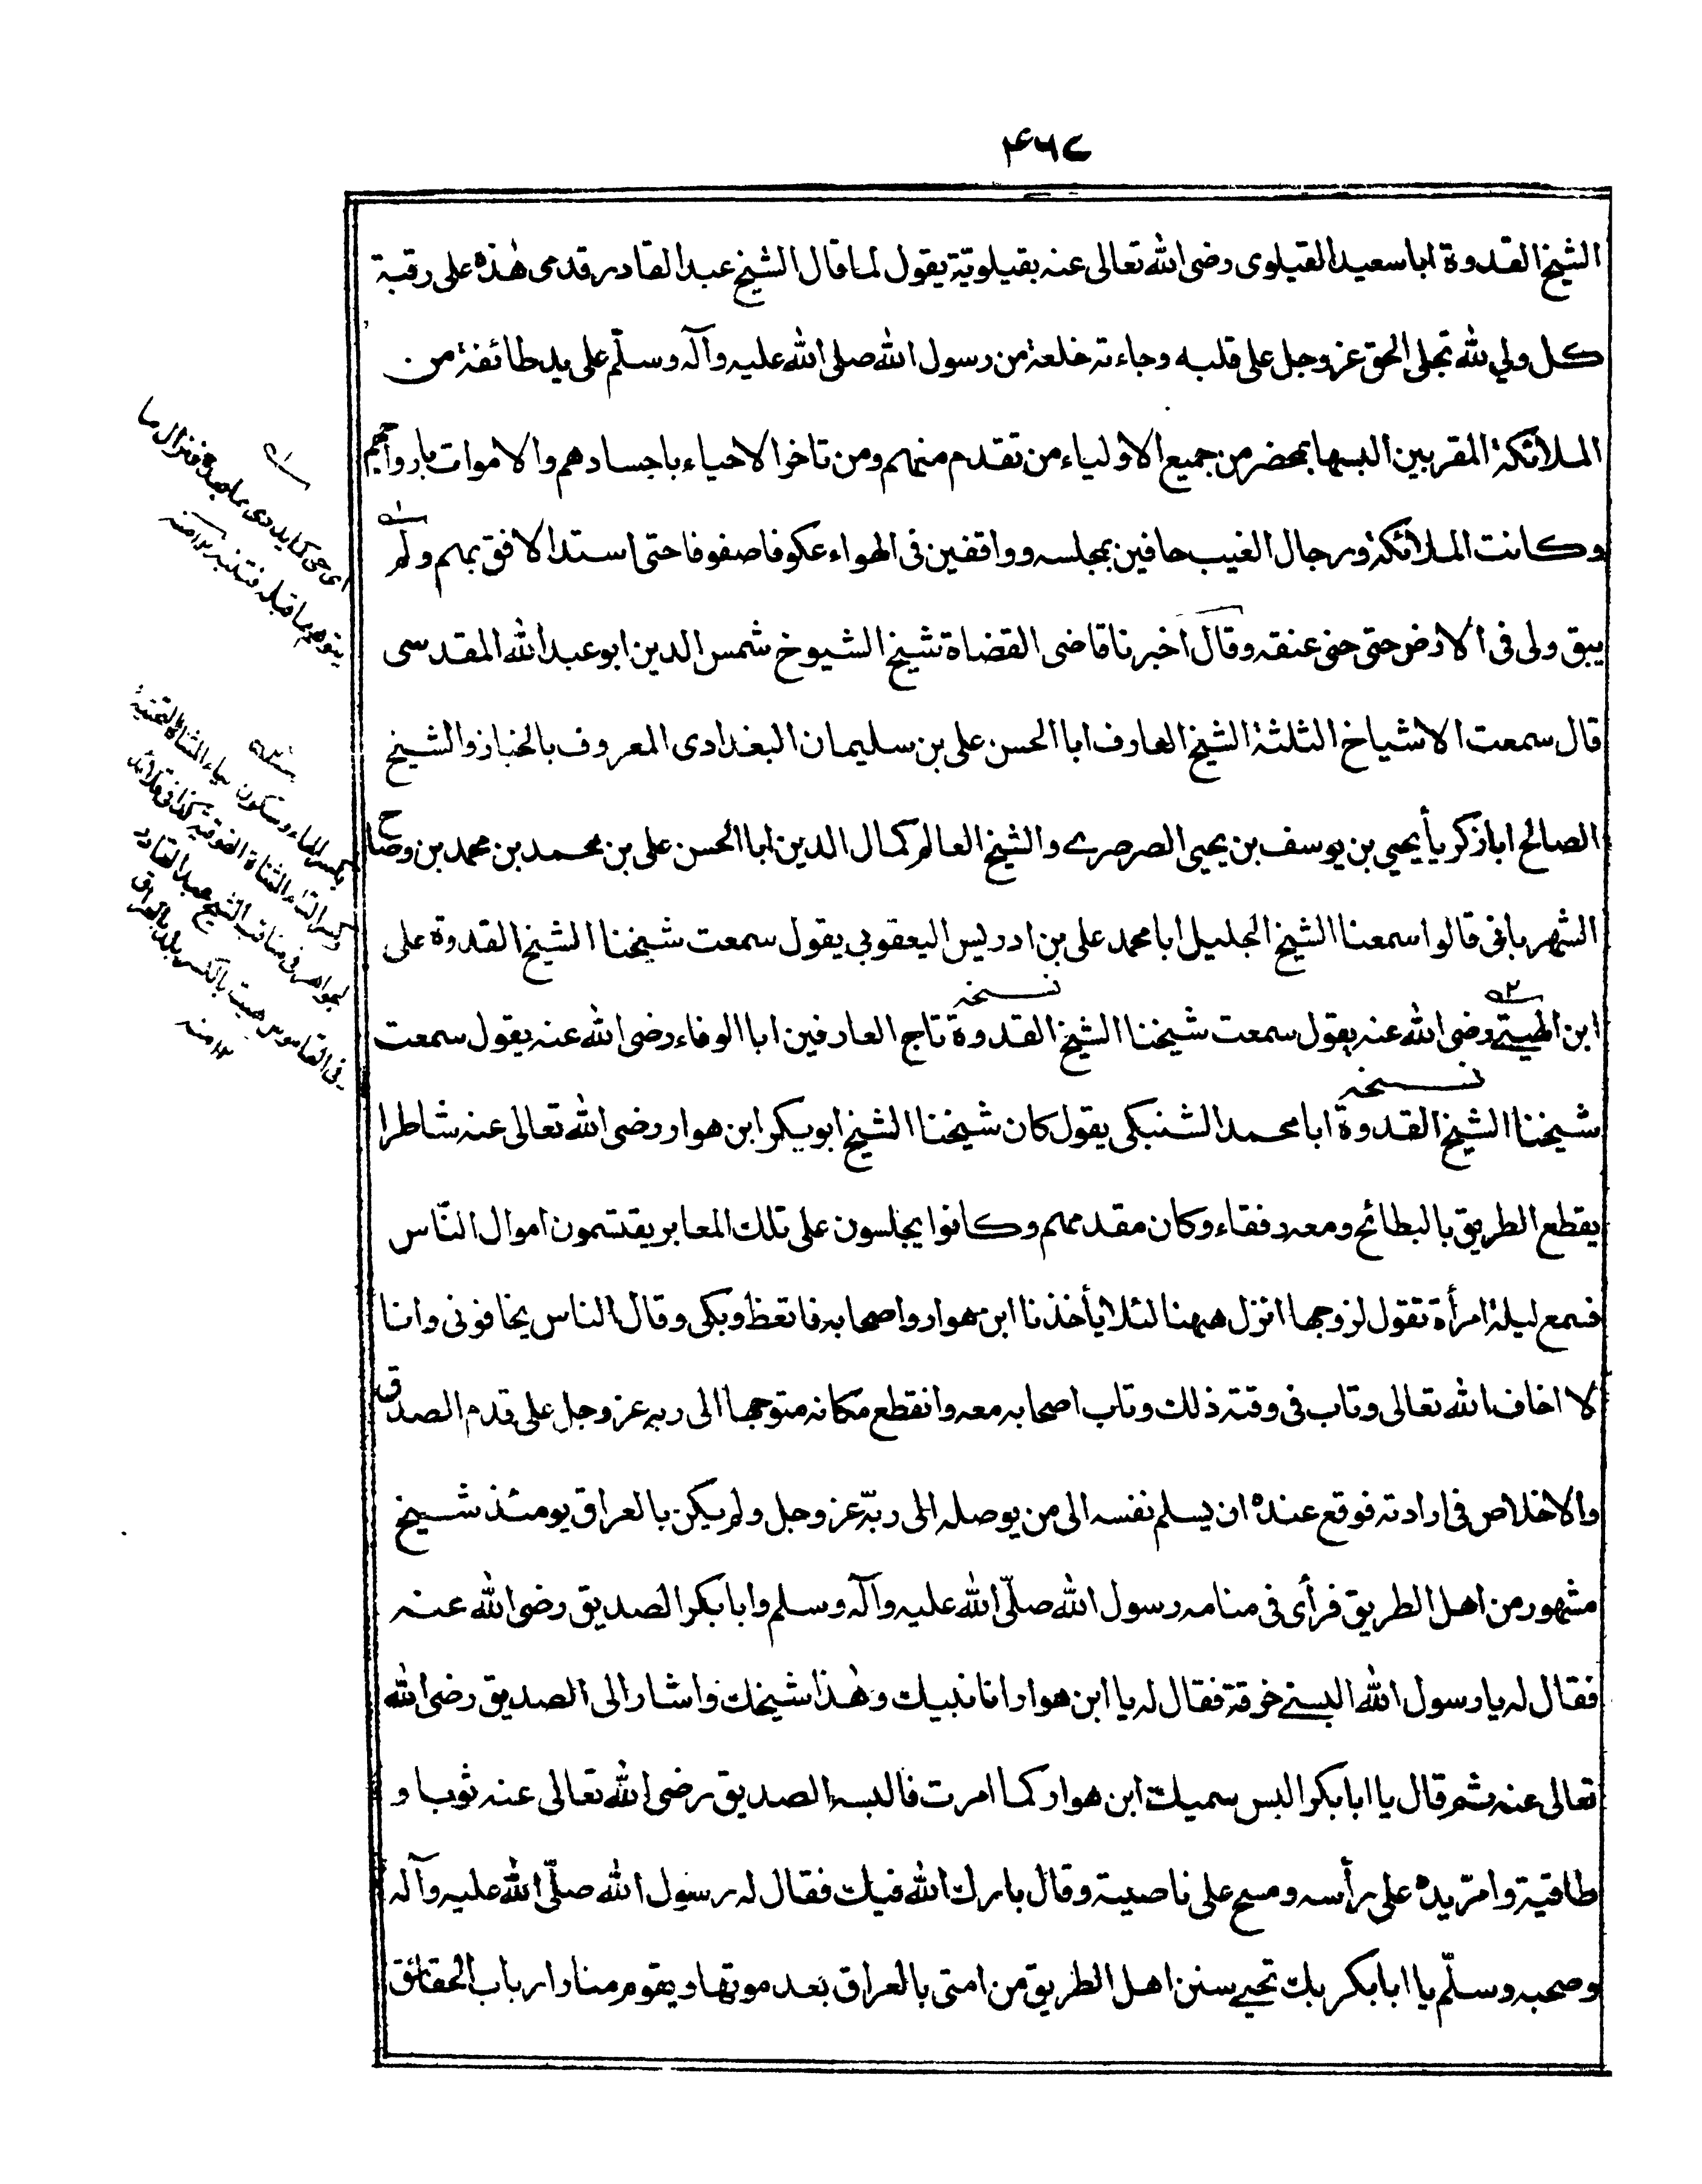 ۴۶۷
الشيخ القدوة ابا سعيد القيلوى رضى الله تعالى عنه بقيلويّة يقول لما قال الشيخ عبد القادر قدمى هٰذه على رقبة
كل ولي لله تجلى الحق عز وجل على قلبه وجاءته خلعة من رسول الله صلى الله عليه وآله وسلّم على يد طائفة من
الملائكة المقربين البسها بمحضر من جميع الاولياء من تقدم منهم ومن تاخر الاحياء باجسادهم والاموات بارواحهم
وكانت الملائكة ورجال الغيب حافين بمجلسه وواقفين فى الهواء عكوفا صفوفا حتى استد الافق بهم ولم
يبق ولى فى الارض حتى حنى عنقه وقال اخبرنا قاضى القضاة شيخ الشيوخ شمس الدين ابو عبد الله المقدسى
قال سمعت الاشياخ الثلثة الشيخ العارف ابا الحسن على بن سليمان البغدادى المعروف بالخباز والشيخ
الصالح ابا زكريا يحيى بن يوسف بن يحيى الصرصرے والشيخ العالم كمال الدين ابا الحسن على بن محمد بن محمد بن وضاح
الشهربانى قالوا سمعنا الشيخ الجليل ابا محمد على بن ادريس اليعقوبي يقول سمعت شيخنا الشيخ القدوة على
ابن الهيتے رضى الله عنه يقول سمعت شيخنا الشيخ القدوة تاج العارفين ابا الوفاء رضى الله عنه يقول سمعت
شيخنا الشيخ القدوة ابا محمد الشنبكى يقول كان شيخنا الشيخ ابو بكر ابن هوار رضى الله تعالى عنه شاطرا
يقطع الطريق بالبطائح ومعه رفقاء وكان مقدمهم وكانوا يجلسون على تلك المعابر يقتسمون اموال النّاس
فسمع ليلة امرأة تقول لزوجها انزل ههنا لئلا يأخذنا ابن هوار واصحابه فاتعظ وبكى وقال الناس يخافونى وانا
لا اخاف الله تعالى وتاب فى وقته ذلك وتاب اصحابه معه وانقطع مكانه متوجها الى ربه عز وجل على قدم الصدق
والاخلاص فى ارادته فوقع عنده ان يسلم نفسه الى من يوصله الى ربّه عز وجل ولم يكن بالعراق يومئذ شيخ
مشهور من اهل الطريق فرأى فى منامه رسول الله صلّى الله عليه وآله وسلم وابا بكر الصديق رضى الله عنه
فقال له يا رسول الله البسنے خرقة فقال له يا ابن هوار انا نبيك وهٰذا شيخك واشار الى الصديق رضى الله
تعالى عنه ثم قال يا ابا بكر البس سميك ابن هوار كما امرت فالبسه الصديق رضى الله تعالى عنه ثوبا و
طاقية وامرّ يده على رأسه ومسح على ناصيته وقال بارك الله فيك فقال له رسول الله صلّى الله عليه وآله
وصحبه وسلّم يا ابا بكر بك تحيے سنن اهل الطريق من امتى بالعراق بعد موتها ويقوم منار ارباب الحقائق
نسخه
نسخه
بكسر الهاء وسكون ياء المثناة التحتية
وكسر التاء المثناة الفوقية كذا فى قلائد
الجواهر فى مناقب الشيخ عبد القادر
فى القاموس هيت بالكسر بلد بالعراق
۱۲ منه